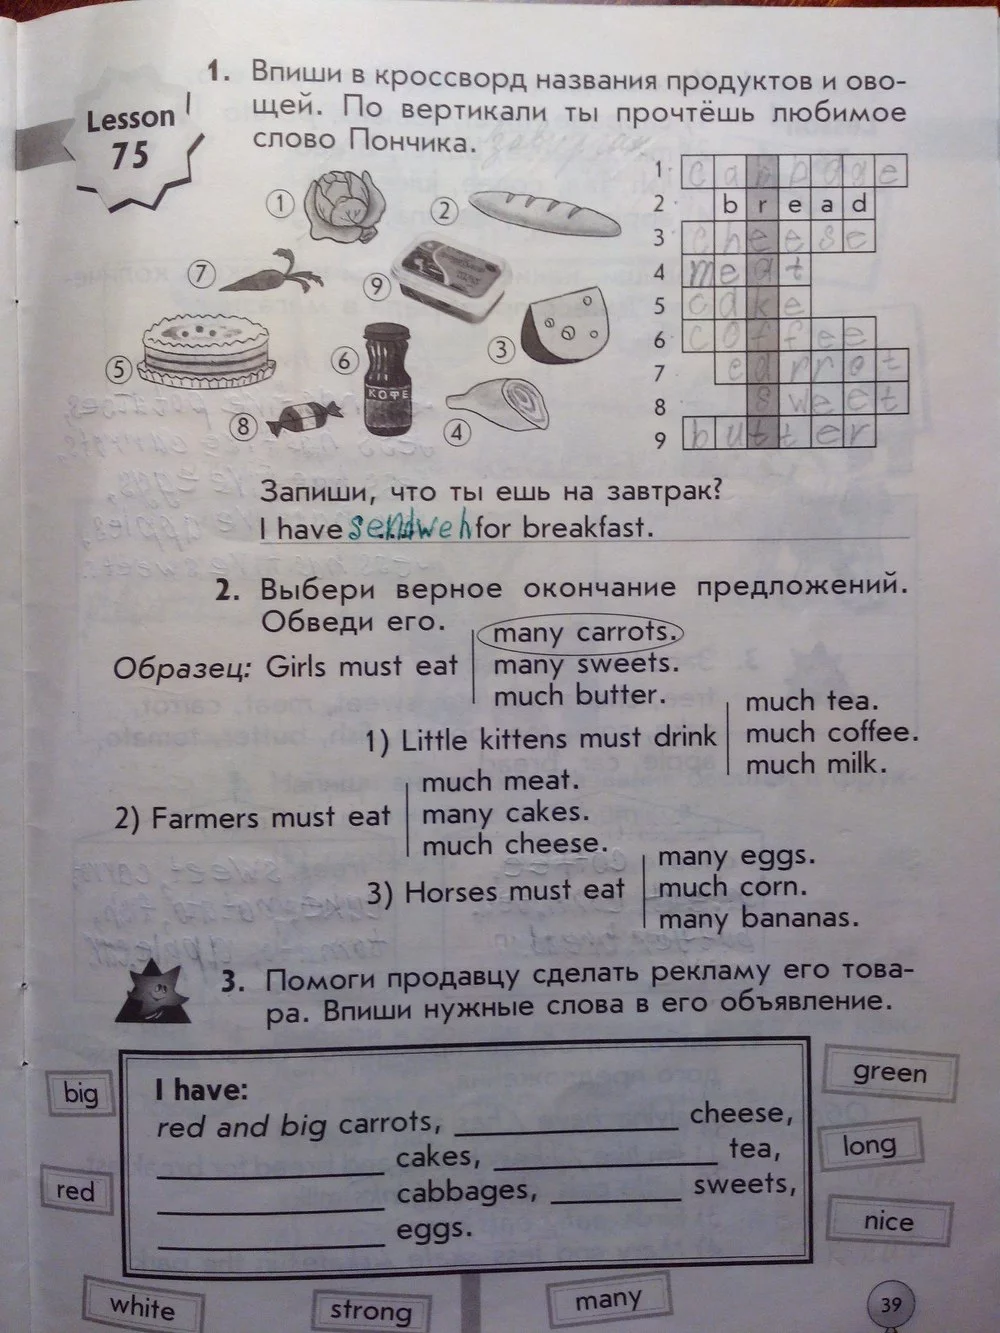 Lesson
75
1. Впиши в кроссворд названия продуктов и ово-
щей. По вертикали ты прочтёшь любимое
слово Пончика.
1
2
7
9
5
6
3
8
4
КОФЕ
1 cabbage
2 bread
3 cheese
4 meat
5 cake
6 coffee
7 carrot
8 sweet
9 butter
Запиши, что ты ешь на завтрак?
I have sendweh for breakfast.
2. Выбери верное окончание предложений.
Обведи его.
Образец: Girls must eat
many carrots.
many sweets.
much butter.
1) Little kittens must drink
much tea.
much coffee.
much milk.
2) Farmers must eat
much meat.
many cakes.
much cheese.
3) Horses must eat
many eggs.
much corn.
many bananas.
3. Помоги продавцу сделать рекламу его това-
ра. Впиши нужные слова в его объявление.
I have:
red and big carrots, ____ cheese,
____ cakes, ____ tea,
____ cabbages, ____ sweets,
____ eggs.
big
red
green
long
nice
white
strong
many
39